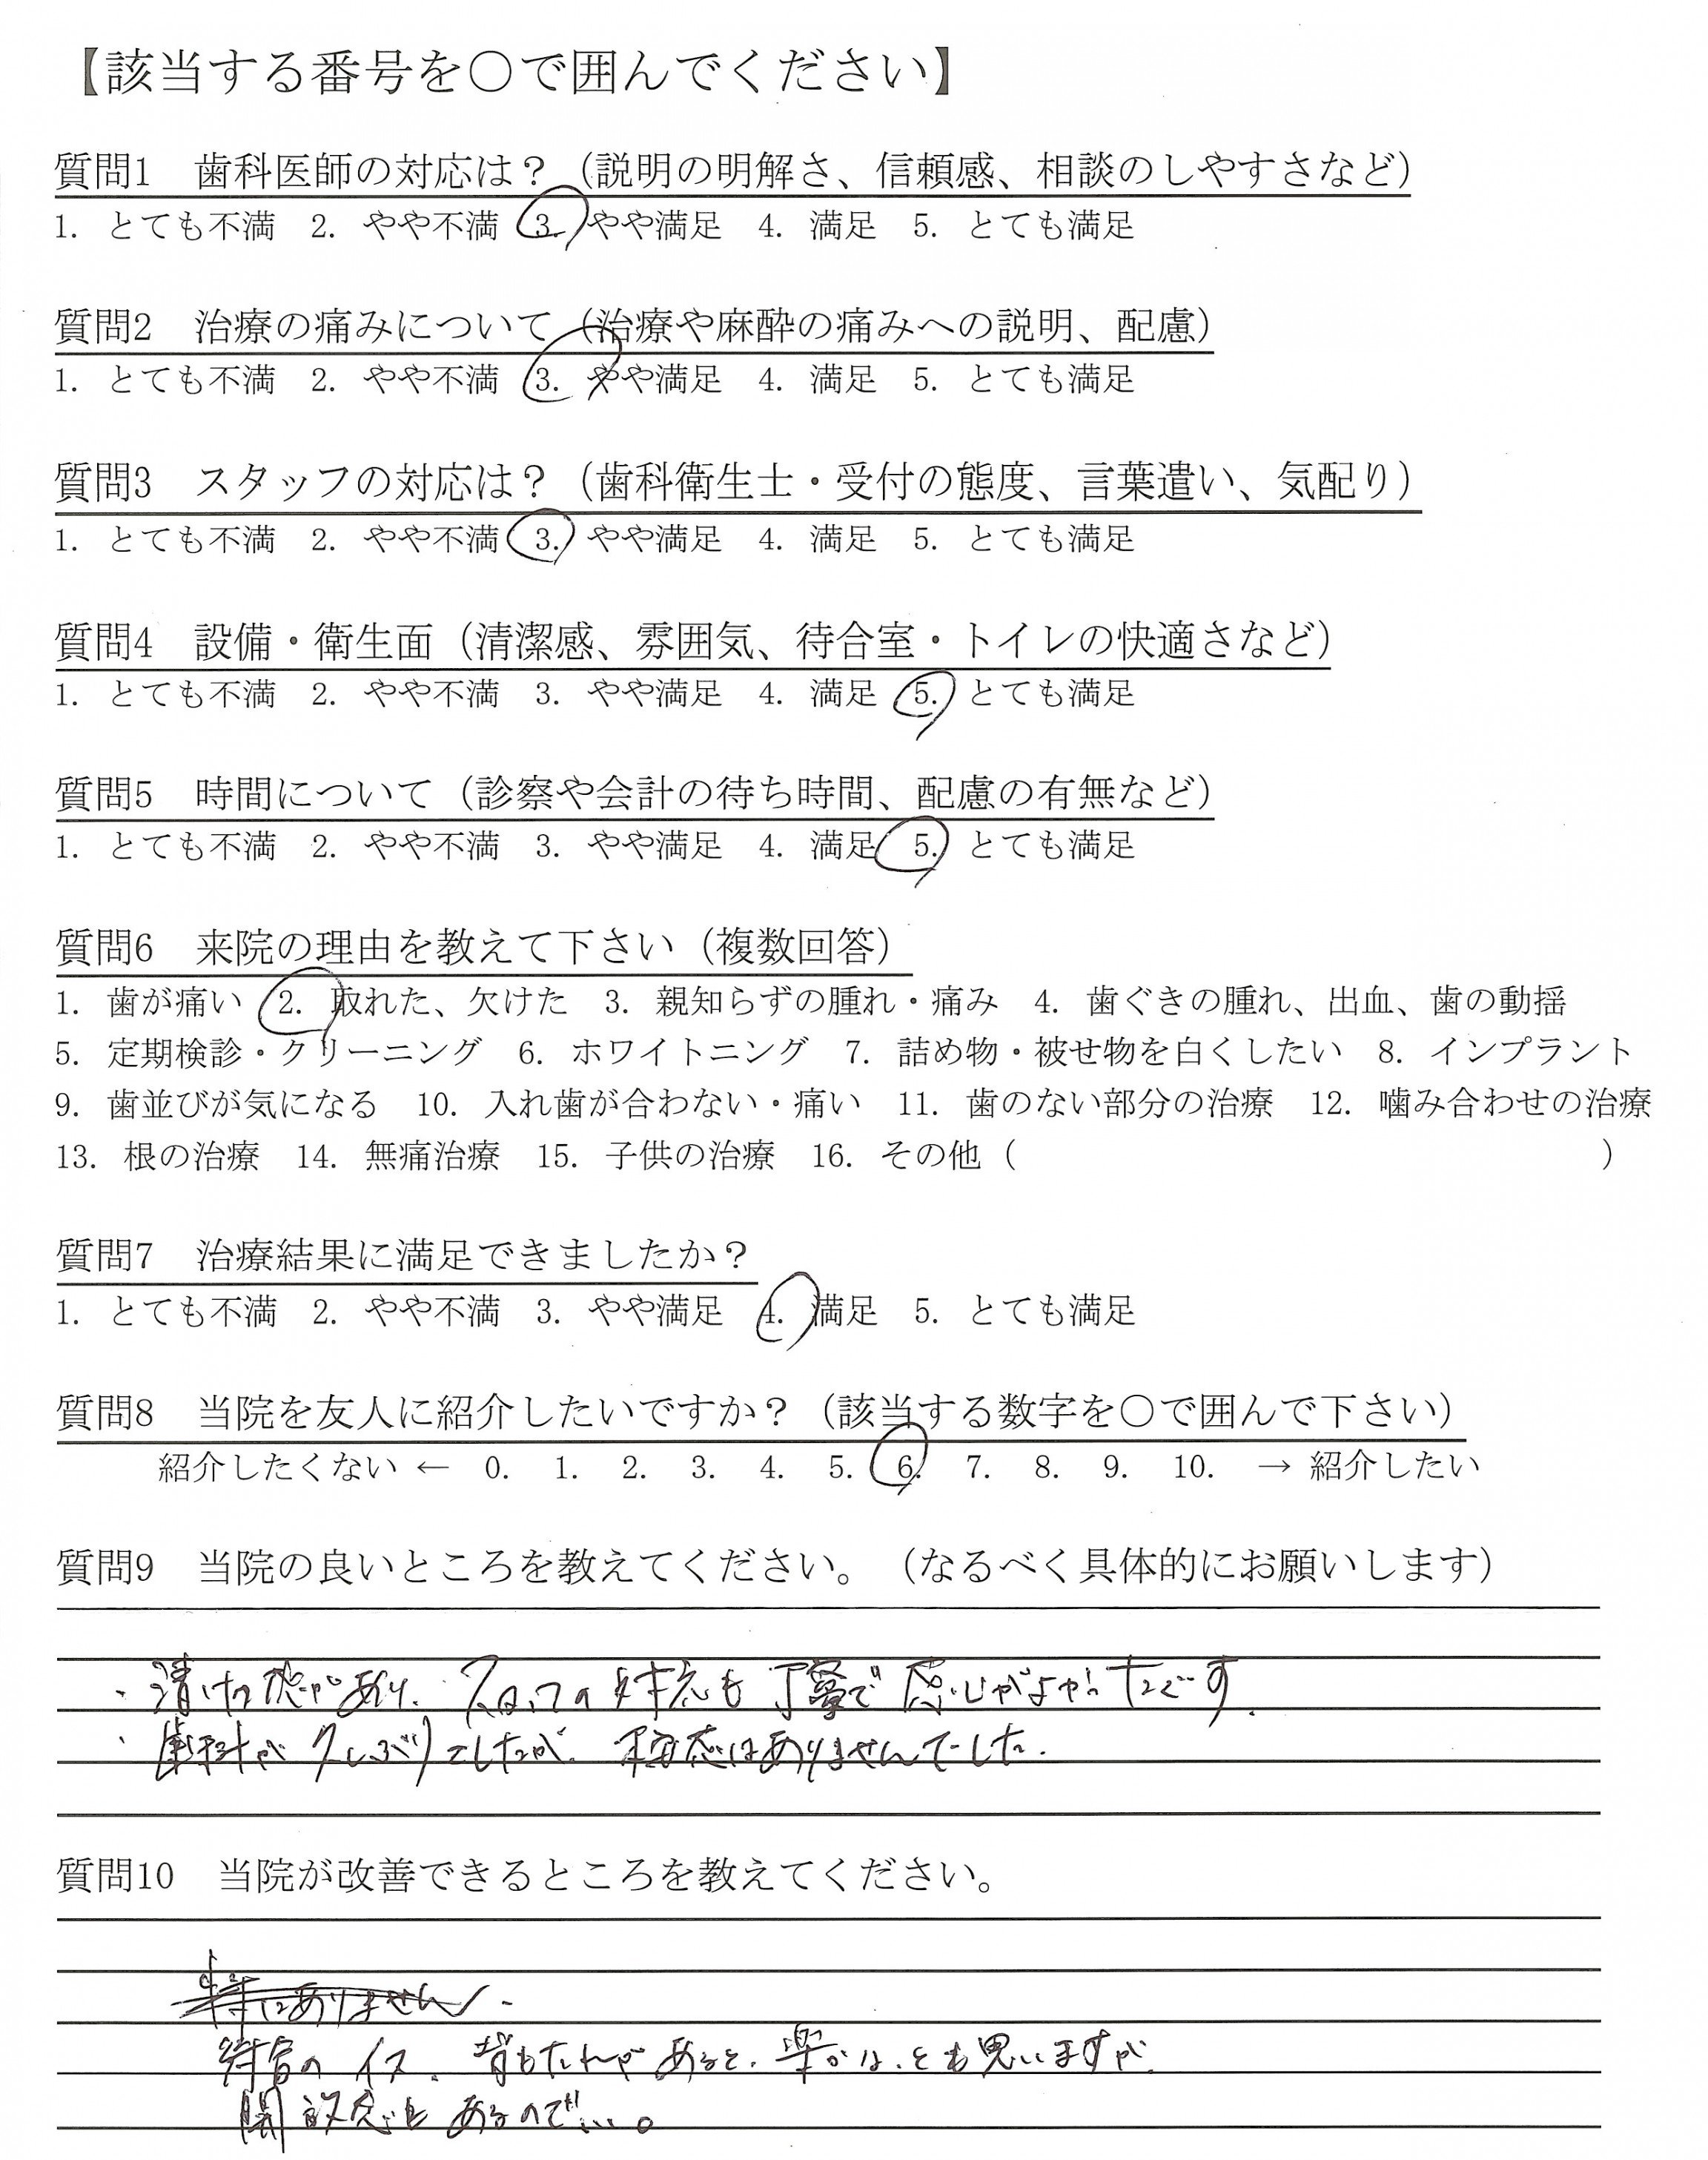 【該当する番号を○で囲んでください】
質問1　歯科医師の対応は？（説明の明解さ、信頼感、相談のしやすさなど）
1. とても不満　2. やや不満　3. やや満足　4. 満足　5. とても満足
質問2　治療の痛みについて（治療や麻酔の痛みへの説明、配慮）
1. とても不満　2. やや不満　3. やや満足　4. 満足　5. とても満足
質問3　スタッフの対応は？（歯科衛生士・受付の態度、言葉遣い、気配り）
1. とても不満　2. やや不満　3. やや満足　4. 満足　5. とても満足
質問4　設備・衛生面（清潔感、雰囲気、待合室・トイレの快適さなど）
1. とても不満　2. やや不満　3. やや満足　4. 満足　5. とても満足
質問5　時間について（診察や会計の待ち時間、配慮の有無など）
1. とても不満　2. やや不満　3. やや満足　4. 満足　5. とても満足
質問6　来院の理由を教えて下さい（複数回答）
1. 歯が痛い　2. 取れた、欠けた　3. 親知らずの腫れ・痛み　4. 歯ぐきの腫れ、出血、歯の動揺
5. 定期検診・クリーニング　6. ホワイトニング　7. 詰め物・被せ物を白くしたい　8. インプラント
9. 歯並びが気になる　10. 入れ歯が合わない・痛い　11. 歯のない部分の治療　12. 噛み合わせの治療
13. 根の治療　14. 無痛治療　15. 子供の治療　16. その他（　　　　　　　　　　）
質問7　治療結果に満足できましたか？
1. とても不満　2. やや不満　3. やや満足　4. 満足　5. とても満足
質問8　当院を友人に紹介したいですか？（該当する数字を○で囲んで下さい）
紹介したくない ← 0. 1. 2. 3. 4. 5. 6. 7. 8. 9. 10. → 紹介したい
質問9　当院の良いところを教えてください。（なるべく具体的にお願いします）
・清けつ感があり、スタッフの対応も丁寧で感じがよかったです。
・歯科が久しぶりでしたが、不安感はありませんでした。
質問10　当院が改善できるところを教えてください。
特にありません。
待合のイス、背もたれがあると、楽かな、とも思いますが、
開放感もあるので…。